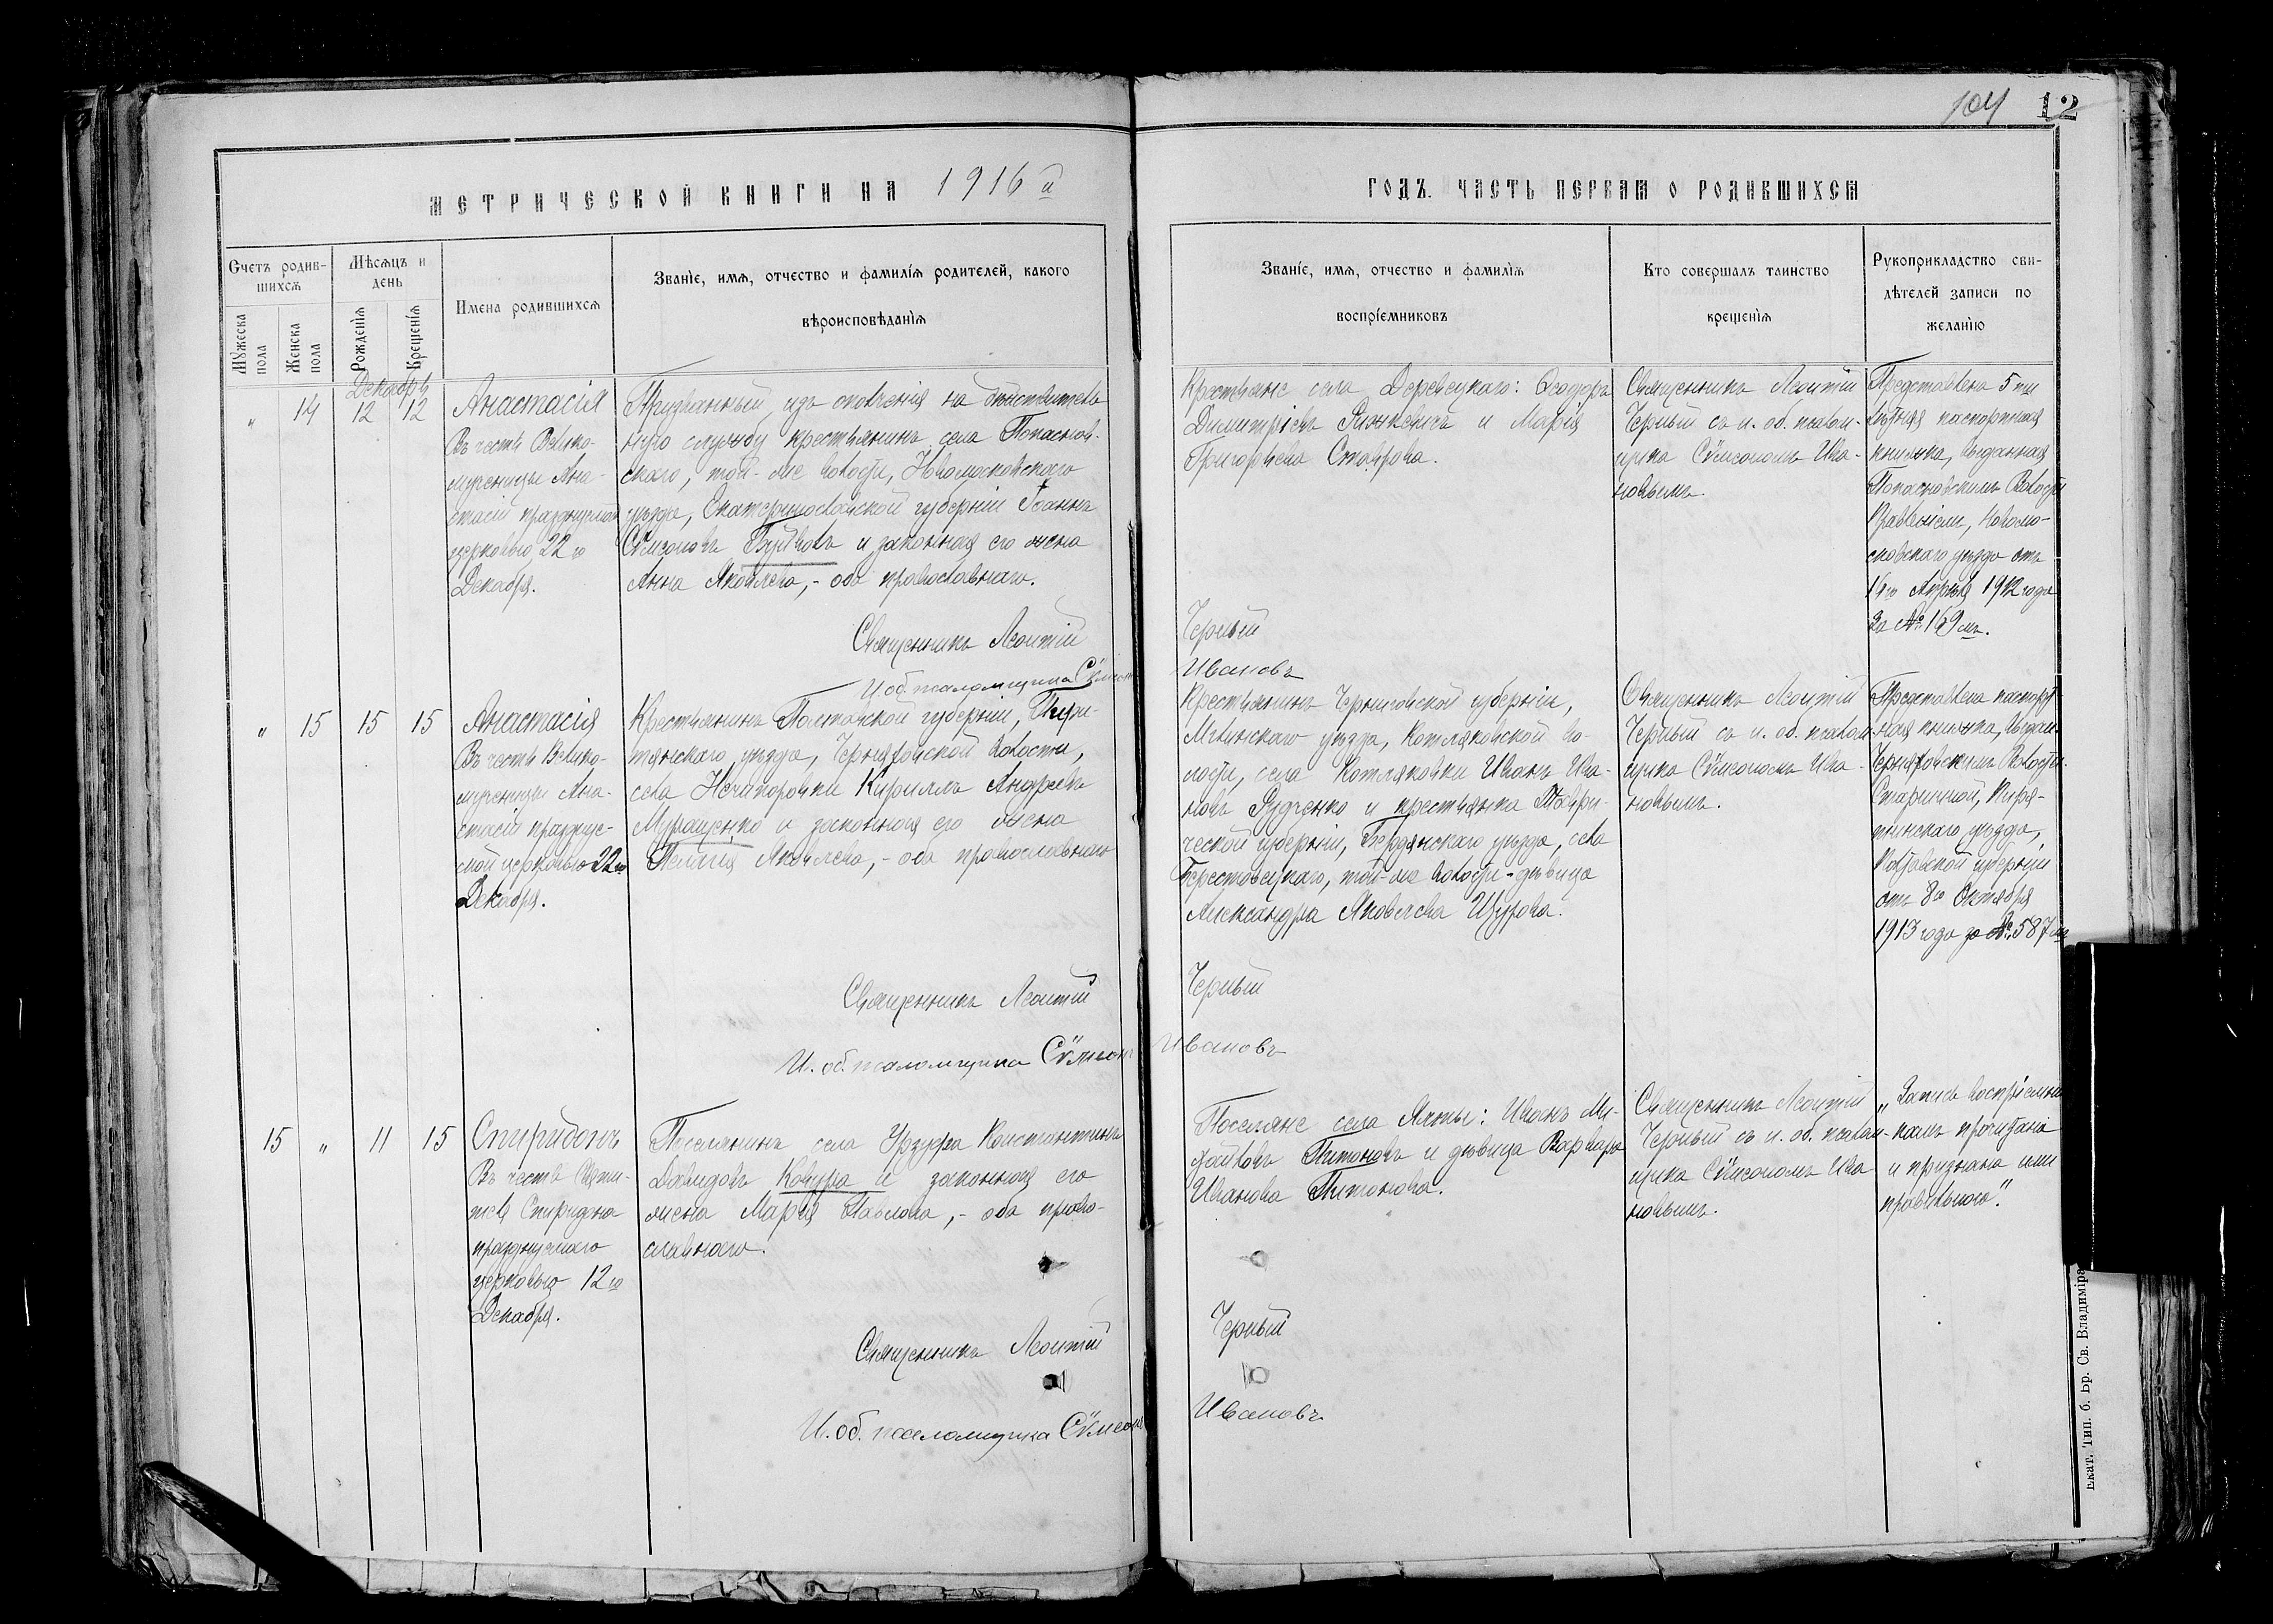 104 12
МЕТРИЧЕСКОЙ КНИГИ НА 1916 й
ГОДЪ. ЧАСТЬ ПЕРВАЯ О РОДИВШИХСЯ
Счетъ родив-
шихся
Мужеска пола
Женска пола
Мѣсяцъ и
день
Рожденія
Крещенія
Имена родившихся
Званіе, имя, отчество и фамилія родителей, какого
вѣроисповѣданія
Званіе, имя, отчество и фамилія
воспріемниковъ
Кто совершалъ таинство
крещенія
Рукоприкладство сви-
дѣтелей записи по
желанію
Декабрь
" 14 12 12
Анастасія
Въ честь Велико-
мученицы Ана-
стасіи празднуемой
церковью 22го
Декабря.
Призванный изъ ополченія на дѣйствитель
ную службу крестьянинъ села Попаснов-
скаго, той-же волости, Новомосковскаго
уѣзда, Екатеринославской губерніи Іоаннъ
Сѵмеоновъ и законная его жена
Анна Яковлева, - оба православнаго.
Священникъ Леонтій
И. об. псаломщика Сѵмеон
Крестьяне села Деревецкаго: Ѳеодоръ
Димитріевъ и Марія
Григорьева Ставрова.
Черный
Ивановъ
Священникъ Леонтій
Черный съ и. об. псалом-
щика Сѵмеономъ Ива-
новымъ.
Представлена 5ти
лѣтняя паспортная
книжка, выданная
Попасновскимъ Волостн
Правленіемъ, Новомо-
сковскаго уѣзда отъ
16го Апрѣля 1912 года
за № 169мъ.
" 15 15 15
Анастасія
Въ честь Велико-
мученицы Ана-
стасіи празднуе-
мой церковью 22го
Декабря.
Крестьянинъ Полтавской губерніи, Пиря-
тинскаго уѣзда, Черняховской волости,
села Нечипоровки Кириллъ Андреевъ
Мурашенко и законная его жена
Пелагія Яковлева, - оба православнаго
Священникъ Леонтій
И. об. псаломщика Сѵмеонъ
Крестьянинъ Черниговской губерніи,
Мглинскаго уѣзда, Котляковской во-
лости, села Котляковки Иванъ Ива-
новъ Рудченко и крестьянка Таври-
ческой губерніи, Бердянскаго уѣзда, села
Берестовецкаго, той-же волости - дѣвица
Александра Яковлева Щурова.
Черный
Ивановъ
Священникъ Леонтій
Черный съ и. об. псалом-
щика Сѵмеономъ Ива-
новымъ.
Представлена паспорт-
ная книжка, выдан.
Черняховскимъ Волостн.
Старшиной, Пиря-
тинскаго уѣзда,
Полтавской губерніи
отъ 8го Октября
1913 года за № 587мъ
15 " 11 15
Спиридонъ
Въ честь Святи-
теля Спиридона
празднуемаго
церковью 12го
Декабря.
Поселянинъ села Урзуфа Константинъ
Давидовъ Кочура и законная его
жена Марія Павлова, - оба право-
славнаго.
Священникъ Леонтій
И. об. псаломщика Сѵмеонъ
Поселяне села Ялты: Иванъ Ми-
хайловъ Питоновъ и дѣвица Варвара
Иванова Питонова.
Черный
Ивановъ
Священникъ Леонтій
Черный съ и. об. псалом-
щика Сѵмеономъ Ива
новымъ.
„Запись воспріемни-
камъ прочитана
и признана ими
правильною".
Екат. Тип. б. Бр. Св. Владиміра